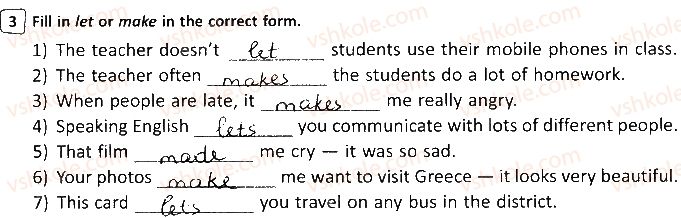 3 Fill in let or make in the correct form.
1) The teacher doesn't let students use their mobile phones in class.
2) The teacher often makes the students do a lot of homework.
3) When people are late, it makes me really angry.
4) Speaking English lets you communicate with lots of different people.
5) That film made me cry — it was so sad.
6) Your photos make me want to visit Greece — it looks very beautiful.
7) This card lets you travel on any bus in the district.